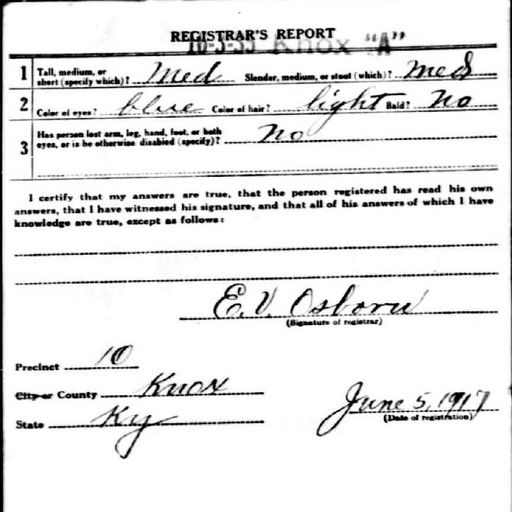 REGISTRAR'S REPORT
16-3-35 Knox "A"
1 Tall, medium, or short (specify which)? Med Slender, medium, or stout (which)? Med
2 Color of eyes? blue Color of hair? light Bald? No
3 Has person lost arm, leg, hand, foot, or both eyes, or is he otherwise disabled (specify)? No
I certify that my answers are true, that the person registered has read his own
answers, that I have witnessed his signature, and that all of his answers of which I have
knowledge are true, except as follows:
E. V. Osborn
(Signature of registrar)
Precinct 10
City or County Knox
State Ky
June 5, 1917
(Date of registration)